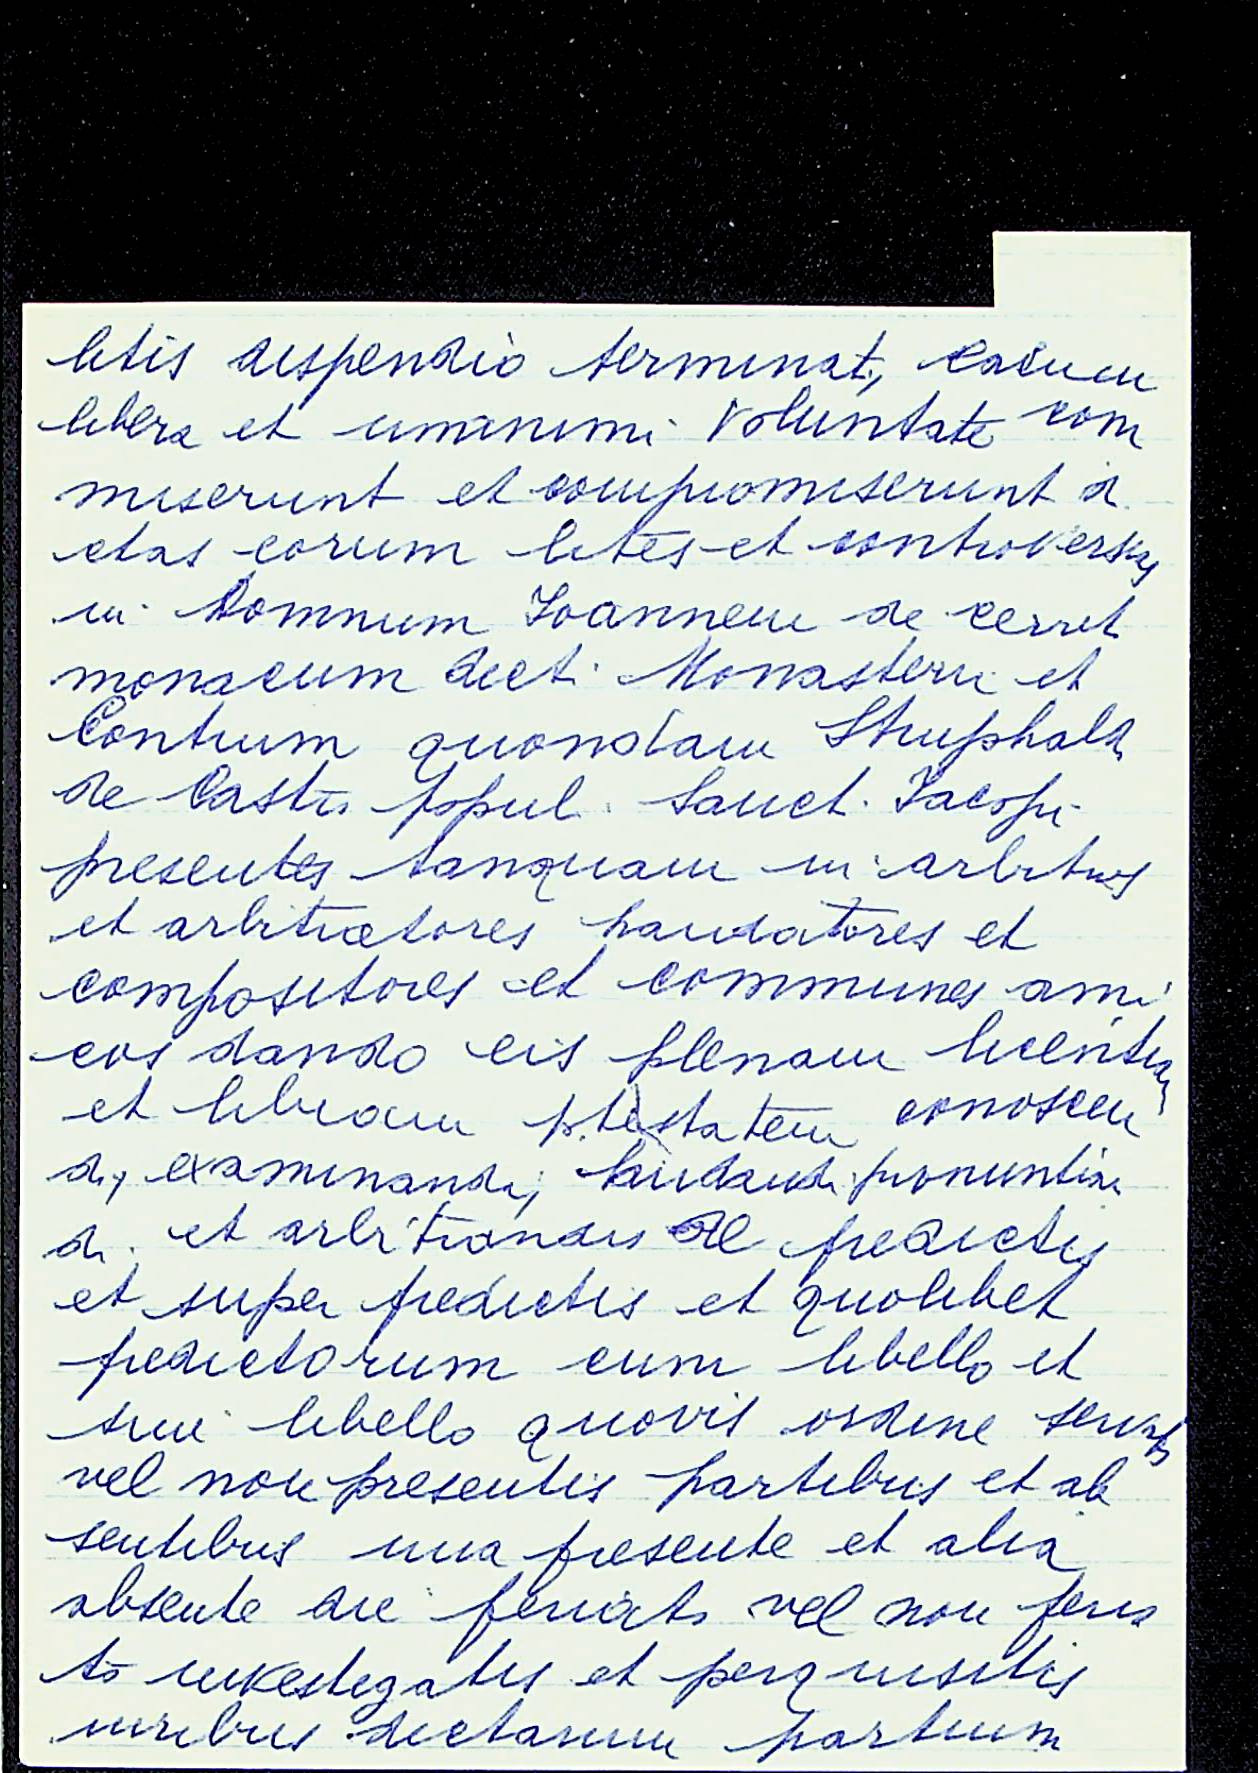 litis dispendio terminat,, earum
libera et unanimi voluntate com
miserunt et compromiserunt di
ctas eorum lites et controversias
in Domnum Joannem de cerret
monacum dict. Monasterii et
Contrum quondam
de Castro popul. Sanct. Jacopi
presentes tanquam in arbitros
et arbitratores laudatores et
compositores et communes ami
cos dando eis plenam licentiam
et liberam potestatem conoscen
di, examinandi, laudandi pronuntian
di et arbitrandi de predictis
et super predictis et quolibet
predictorum cum libello et
sine libello quovis ordine servato
vel non presentis partibus et ab
sentibus una presente et alia
absente die feriato vel non feria
to investigatis et perquisitis
iuribus dictarum partium